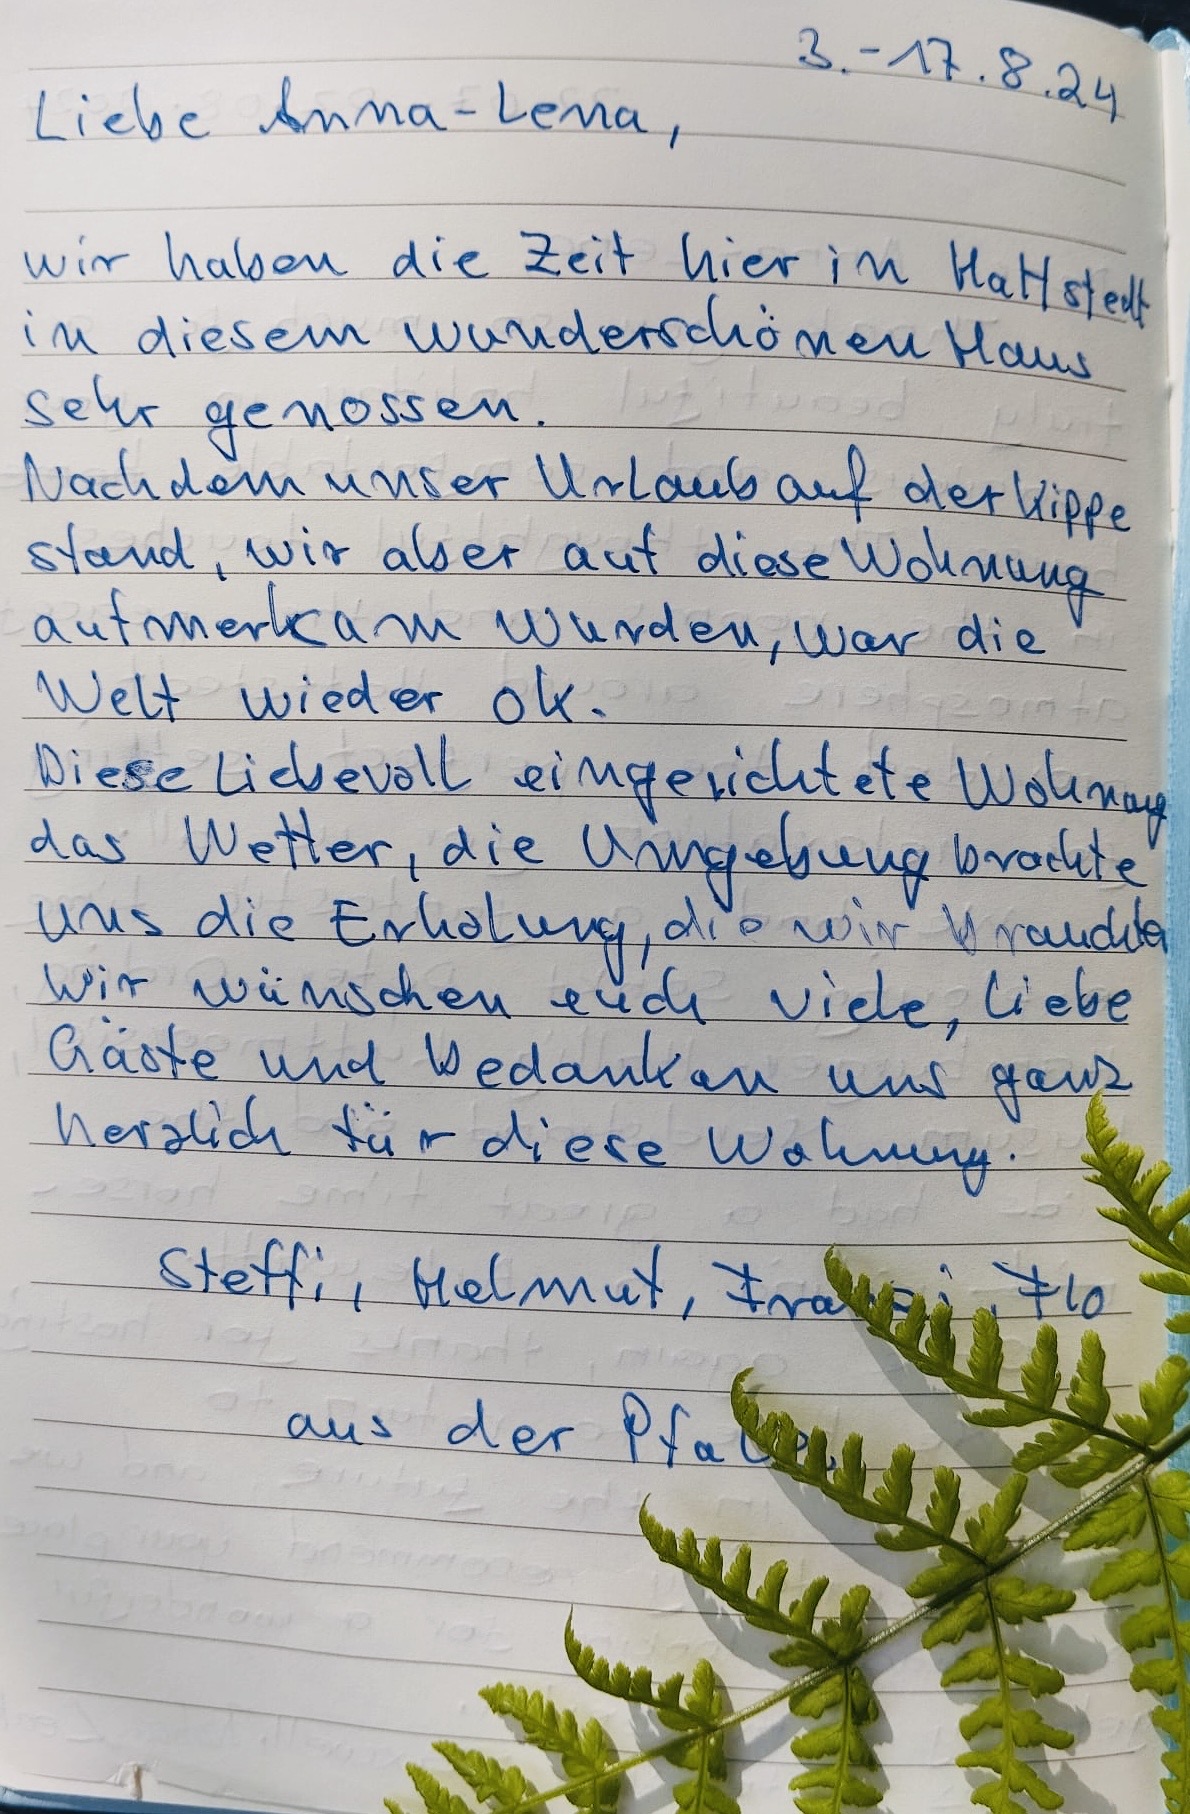 3.-17.8.24
Liebe Anna-Lena,
wir haben die Zeit hier in Hattstedt
in diesem wunderschönen Haus
sehr genossen.
Nachdem unser Urlaub auf der Kippe
stand, wir aber auf diese Wohnung
aufmerksam wurden, war die
Welt wieder ok.
Diese Liebevoll eingerichtete Wohnung
das Wetter, die Umgebung brachte
uns die Erholung, die wir brauchten
Wir wünschen euch viele, liebe
Gäste und bedanken uns ganz
herzlich für diese Wohnung.
Steffi, Helmut, Franzi, Flo
aus der Pfalz.